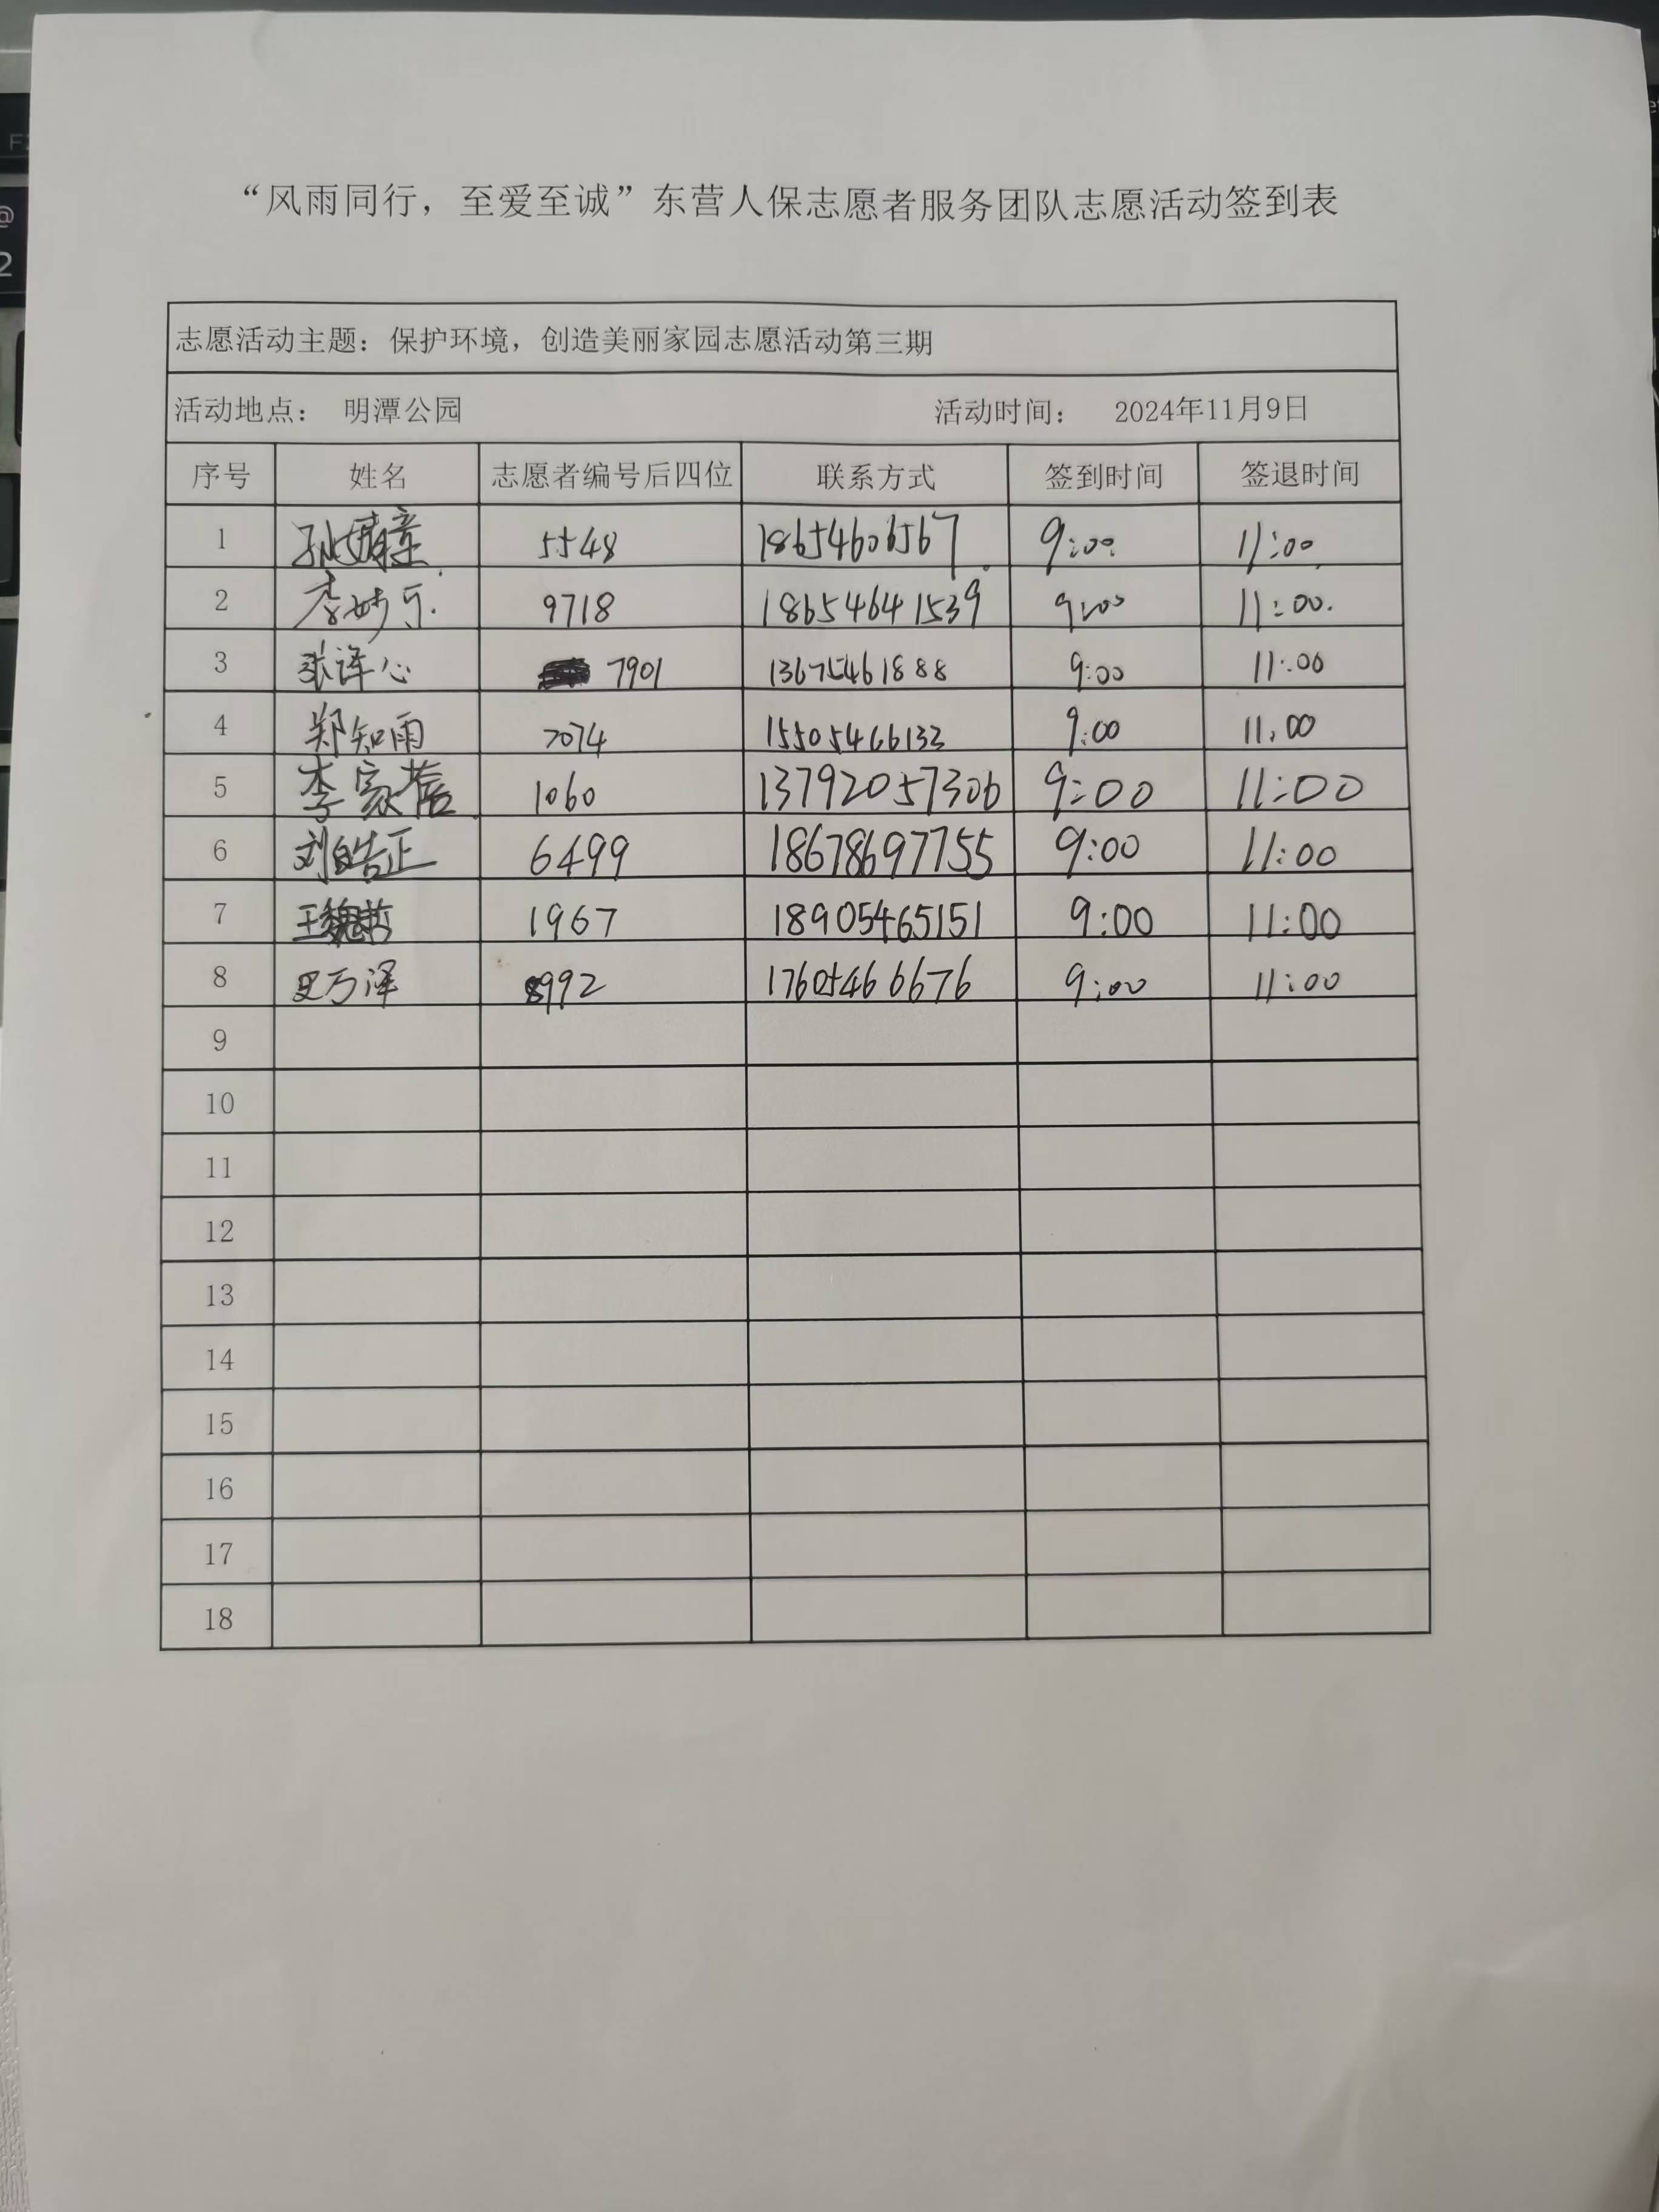 “风雨同行，至爱至诚”东营人保志愿者服务团队志愿活动签到表
志愿活动主题：保护环境，创造美丽家园志愿活动第三期
活动地点： 明潭公园 活动时间： 2024年11月9日
序号 姓名 志愿者编号后四位 联系方式 签到时间 签退时间
1 孙婧童 5548 18654606567 9:00 11:00
2 李妙 9718 18654641539 9:00 11:00.
3 张译心 7901 13675461888 9:00 11:00
4 郑知雨 7074 15505466132 9:00 11:00
5 李家 1060 13792057306 9:00 11:00
6 刘皓正 6499 18678697755 9:00 11:00
7 王魏哲 1967 18905465151 9:00 11:00
8 史万泽 8992 17605466676 9:00 11:00
9
10
11
12
13
14
15
16
17
18
@
2